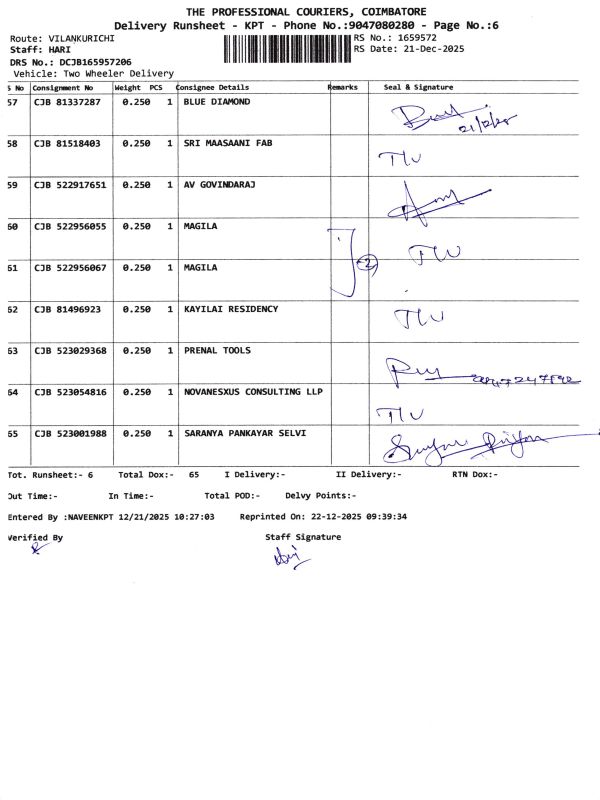 THE PROFESSIONAL COURIERS, COIMBATORE
Delivery Runsheet - KPT - Phone No.:9047080280 - Page No.:6
Route: VILANKURICHI RS No.: 1659572
Staff: HARI RS Date: 21-Dec-2025
DRS No.: DCJB165957206
Vehicle: Two Wheeler Delivery
S No Consignment No Weight PCS Consignee Details Remarks Seal & Signature
57 CJB 81337287 0.250 1 BLUE DIAMOND
58 CJB 81518403 0.250 1 SRI MAASAANI FAB TLV
59 CJB 522917651 0.250 1 AV GOVINDARAJ
60 CJB 522956055 0.250 1 MAGILA
61 CJB 522956067 0.250 1 MAGILA 2
62 CJB 81496923 0.250 1 KAYILAI RESIDENCY TLV
63 CJB 523029368 0.250 1 PRENAL TOOLS
64 CJB 523054816 0.250 1 NOVANESXUS CONSULTING LLP TLV
65 CJB 523001988 0.250 1 SARANYA PANKAYAR SELVI
Tot. Runsheet:- 6 Total Dox:- 65 I Delivery:- II Delivery:- RTN Dox:-
Out Time:- In Time:- Total POD:- Delvy Points:-
Entered By :NAVEENKPT 12/21/2025 10:27:03 Reprinted On: 22-12-2025 09:39:34
Verified By Staff Signature